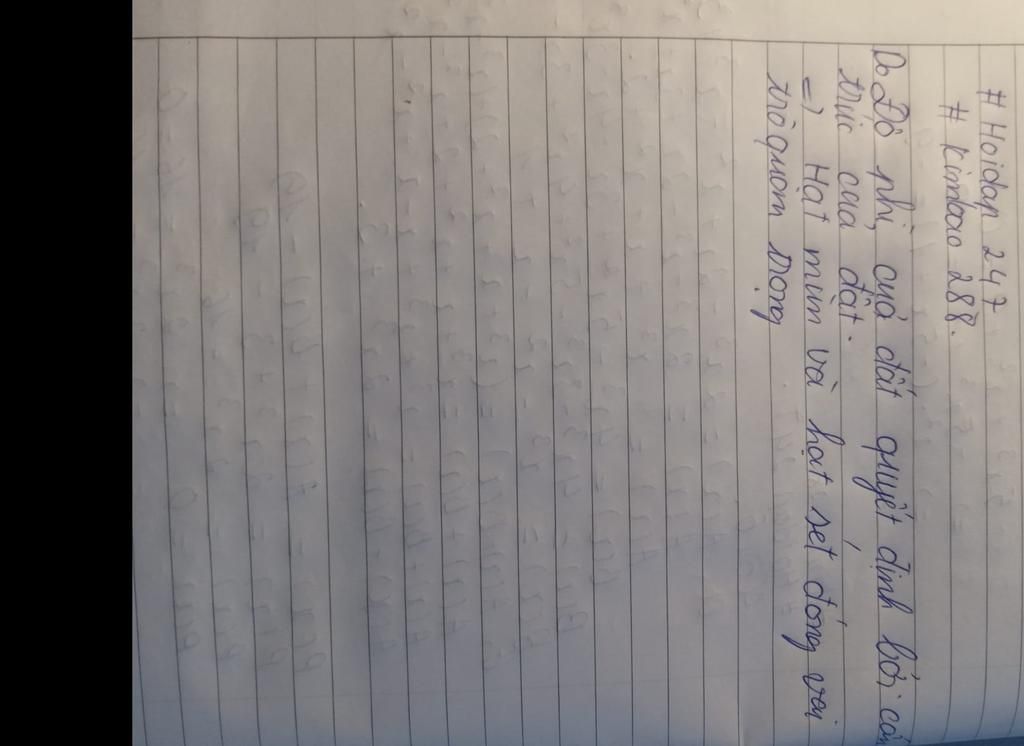 # Hoidap 247
# Kimbao 288.
Do Độ phì của đất quyết định bởi cấu
trúc của đất.
=) Hạt mùn và hạt sét đóng vai
trò quan trọng